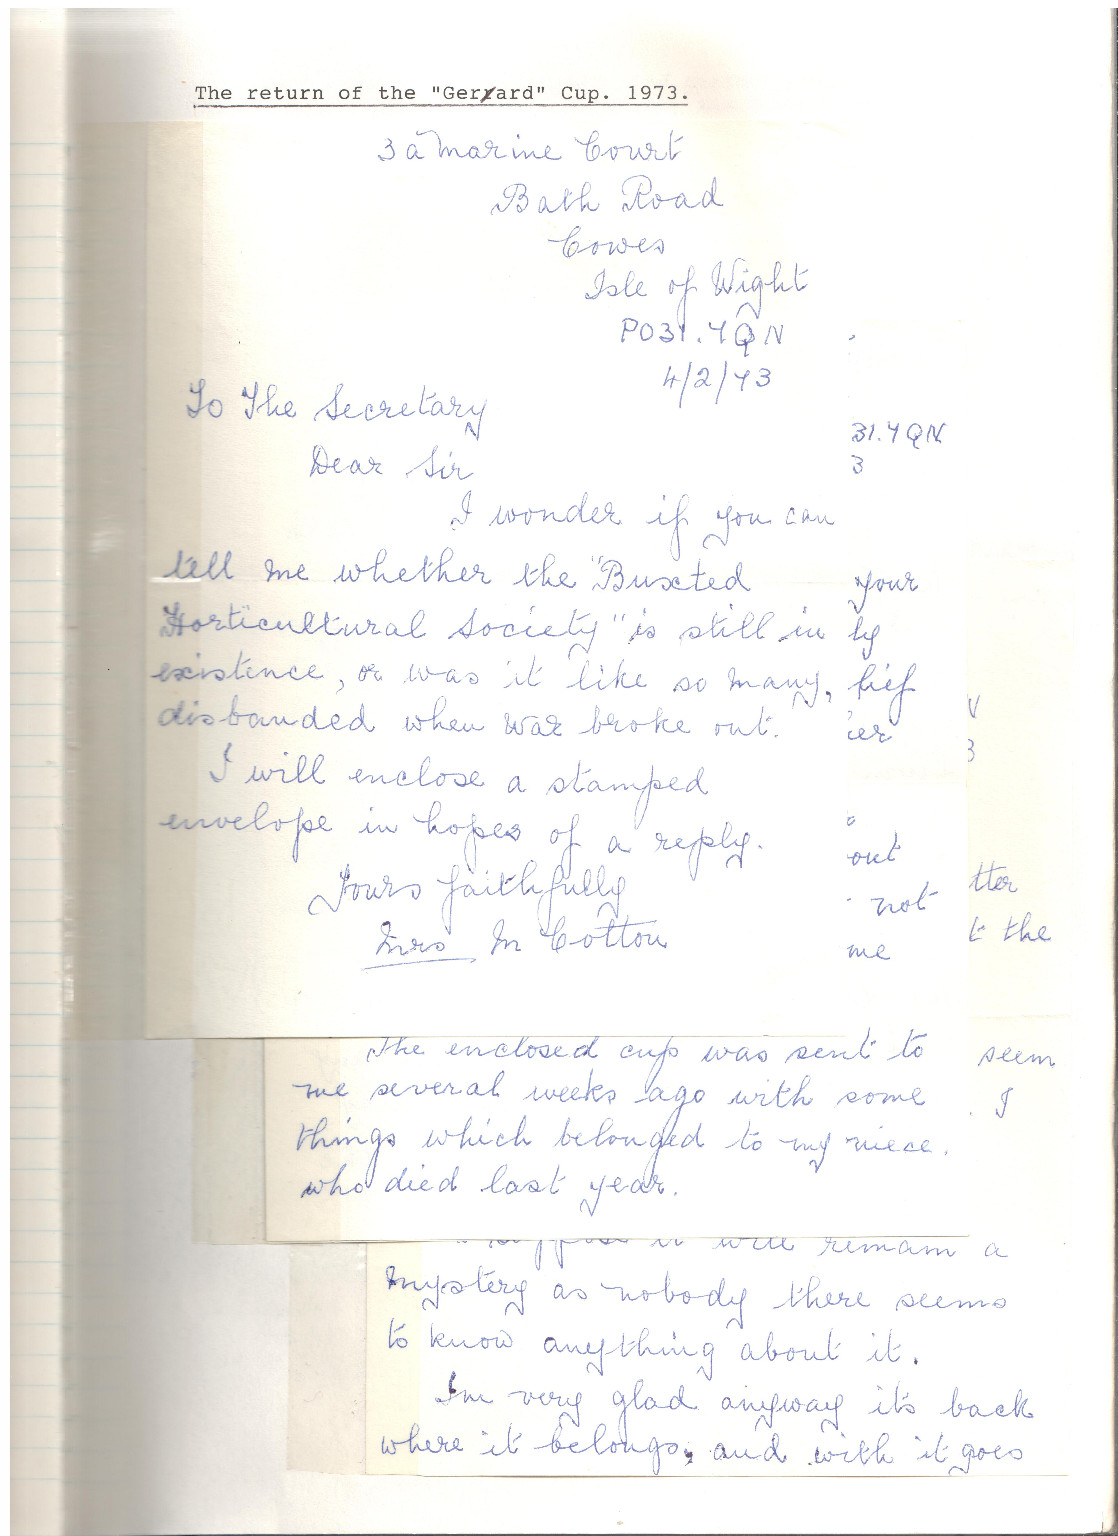 The return of the "Gerrard" Cup. 1973.
3a Marine Court
Bath Road
Cowes
Isle of Wight
PO31.7QN
4/2/73
To The Secretary
Dear Sir
I wonder if you can
tell me whether the "Buxted
Horticultural Society" is still in
existence, or was it like so many,
disbanded when war broke out.
I will enclose a stamped
envelope in hopes of a reply.
Yours faithfully
Mrs M Cotton
31.7QN
3
your
ly
out
not
me
The enclosed cup was sent to
me several weeks ago with some
things which belonged to my niece.
who died last year.
tter
t the
seem
. I
suppose it will remain a
mystery as nobody there seems
to know anything about it.
I'm very glad anyway it's back
where it belongs, and with it goes